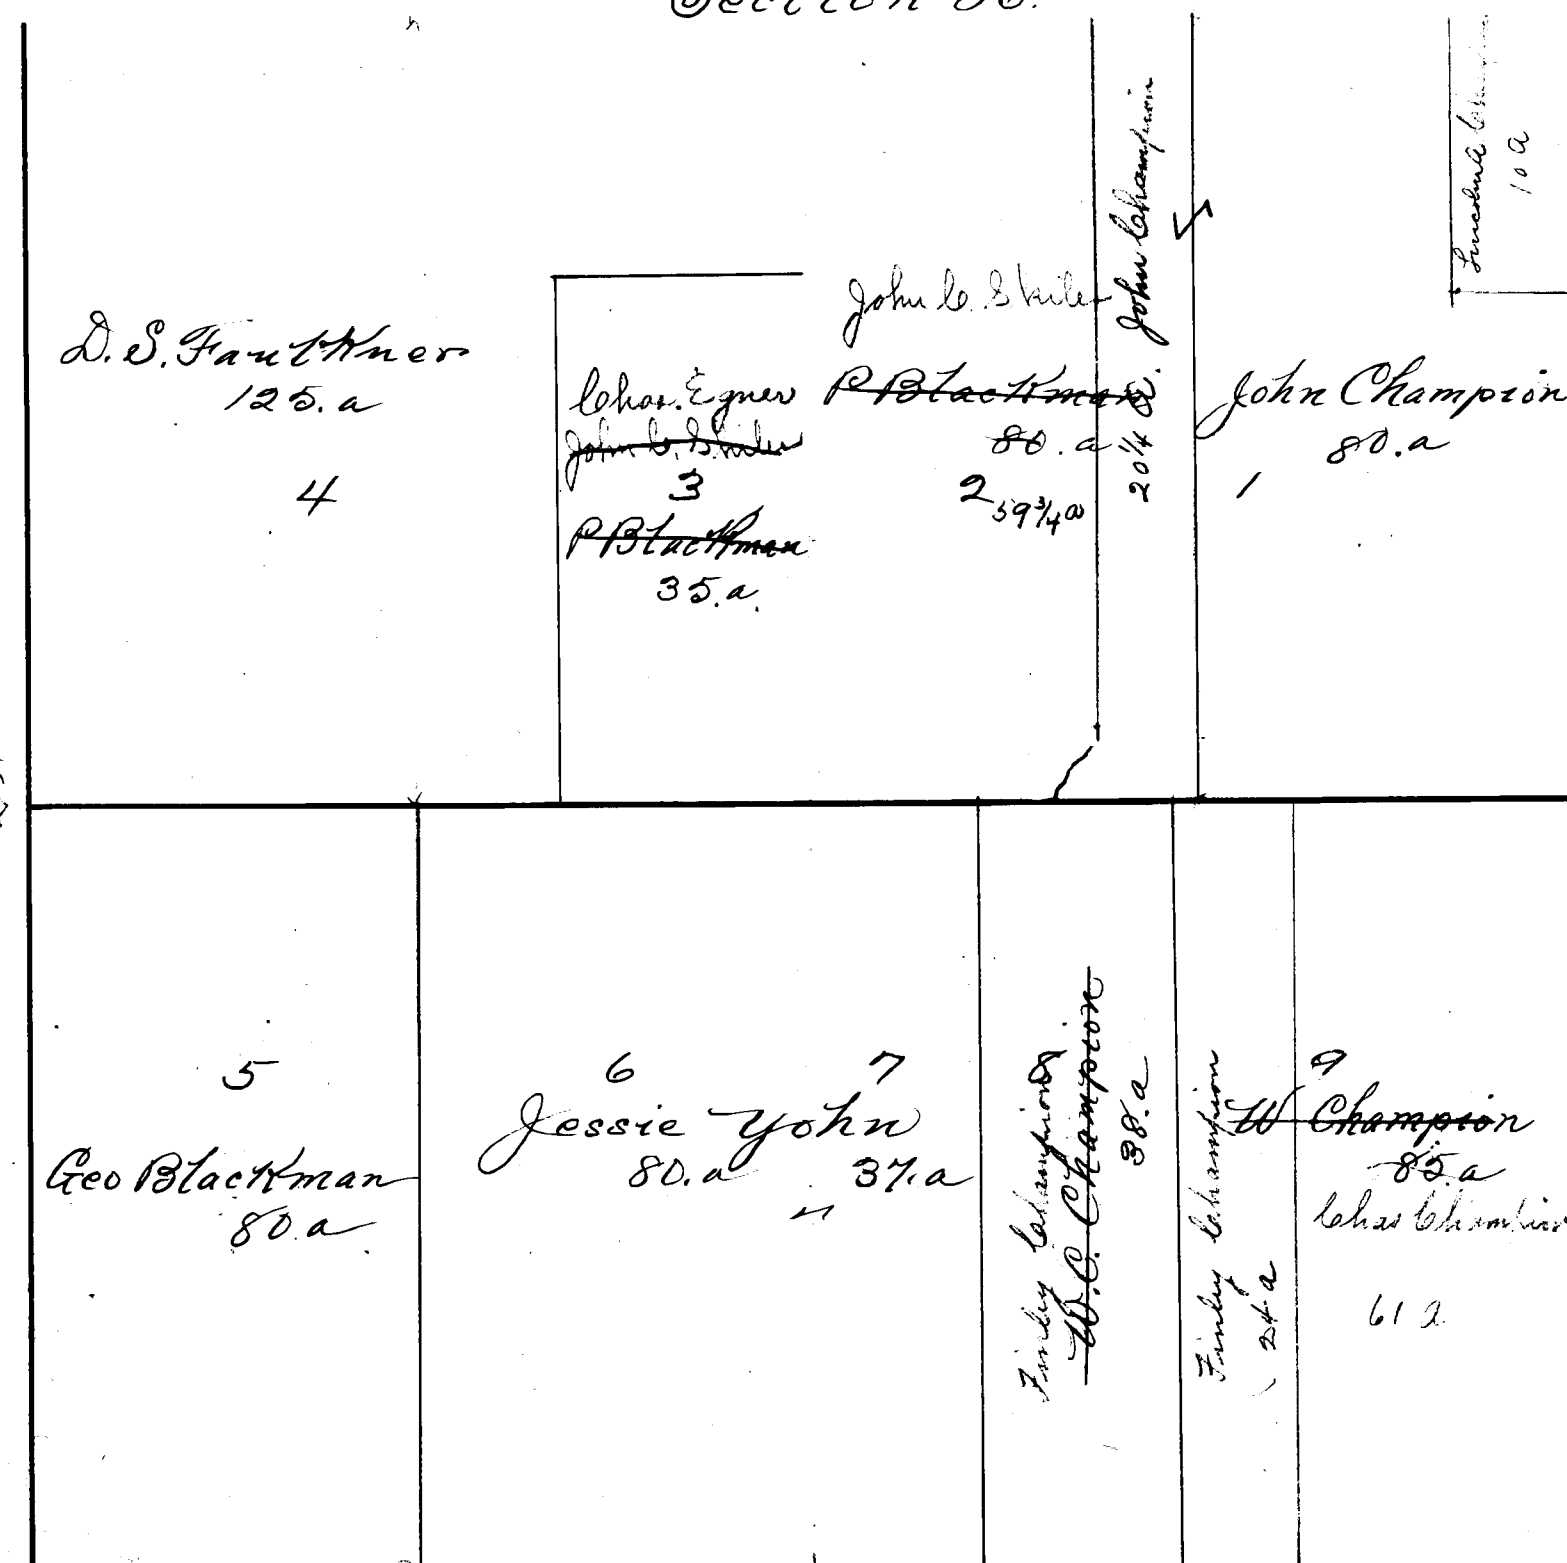 Section 36.
D. S. Faulkner
125. a
4
Chas. Egner
John C. Skiles
3
P Blackman
35. a.
John C. Skiles
P Blackman
80. a
2
59 3/4 a
20 1/4 a. John Champion
John Champion
80. a
1
10 a
5
Geo Blackman
80. a
6
7
Jessie Yohn
80. a
37. a
Finley Champion
W. C. Champion
38. a
Finley Champion
24 a
9
W Champion
85. a
Chas Champion
61 a